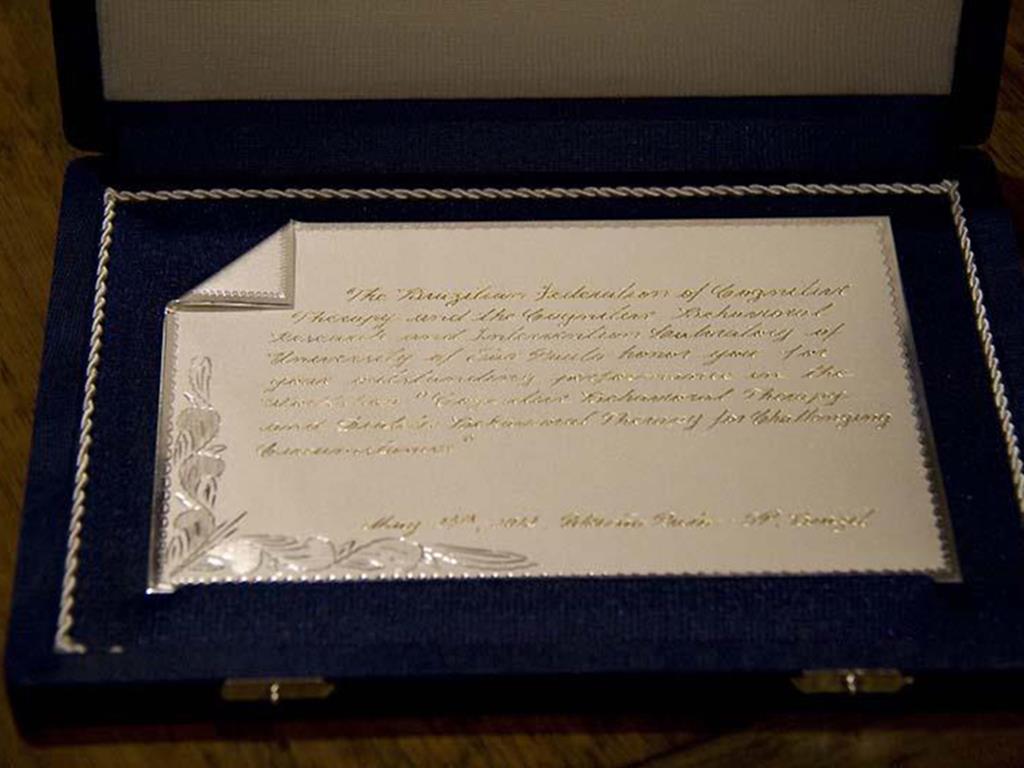 "The Brazilian Federation of Cognitive
Therapy and the Cognitive Behavioral
Research and Intervention Laboratory of
University of Sao Paulo honor you for
your outstanding performance in the
workshop "Cognitive Behavioral Therapy
and Behavioral Therapy for Challenging
Circumstances"
May Brazil